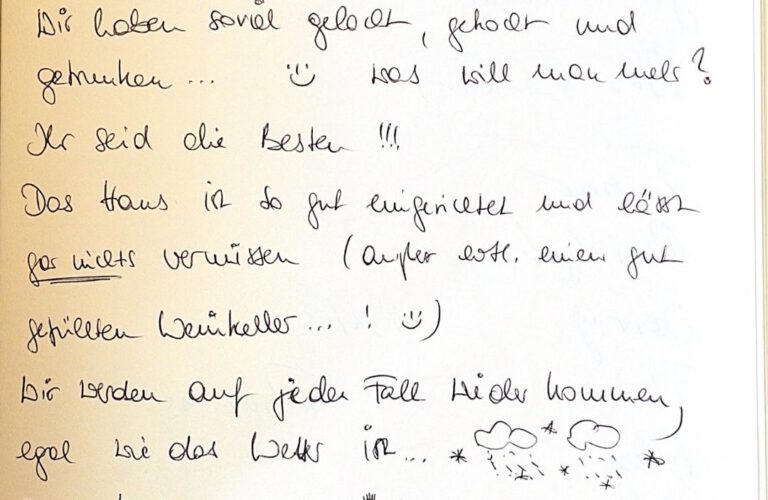 Wir haben soviel gelacht, gekocht und
getrunken... was will man mehr?
Ihr seid die Besten !!!
Das Haus ist so gut eingerichtet und lässt
gar nichts vermissen (außer evtl. einen gut
gefüllten Weinkeller... ! )
Wir werden auf jeden Fall wieder kommen,
egal wie das Wetter ist...